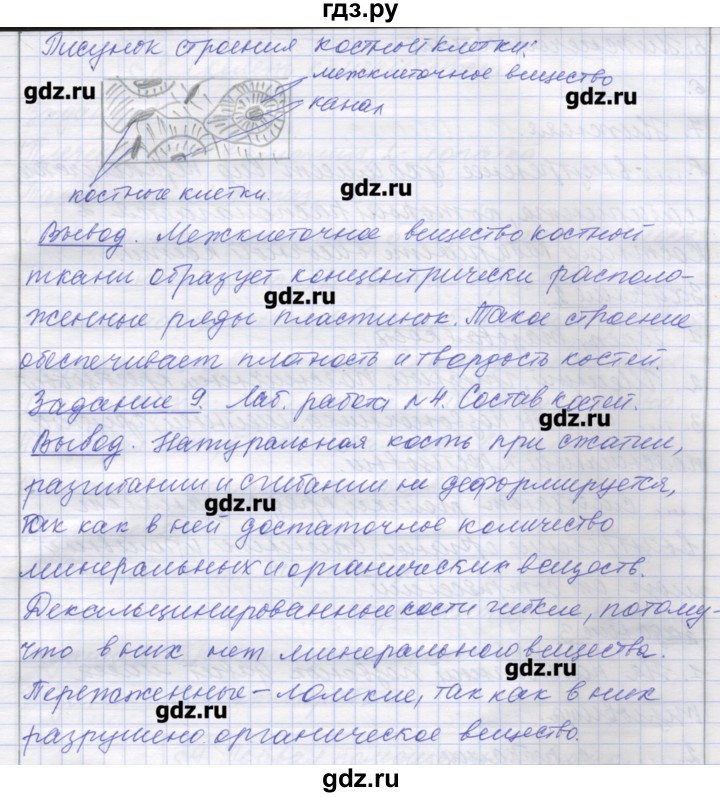 гдз.ру
Рисунок строения костной клетки:
межклеточное вещество
gdz.ru
gdz.ru
канал
костные клетки.
gdz.ru
Вывод. Межклеточное вещество костной
ткани образует концентрически располо-
gdz.ru
женные ряды пластинок. Такое строение
обеспечивает плотность и твердость костей.
Задание 9. Лаб. работа №4. Состав костей.
gdz.ru
Вывод. Натуральная кость при сжатии,
разгибании и сгибании не деформируется,
gdz.ru
так как в ней достаточное количество
минеральных и органических веществ.
Декальцинированные кости гибкие, потому
что в них нет минерального вещества.
gdz.ru
Пережаженные – ломкие, так как в них
gdz.ru
разрушено органическое вещество.
gdz.ru